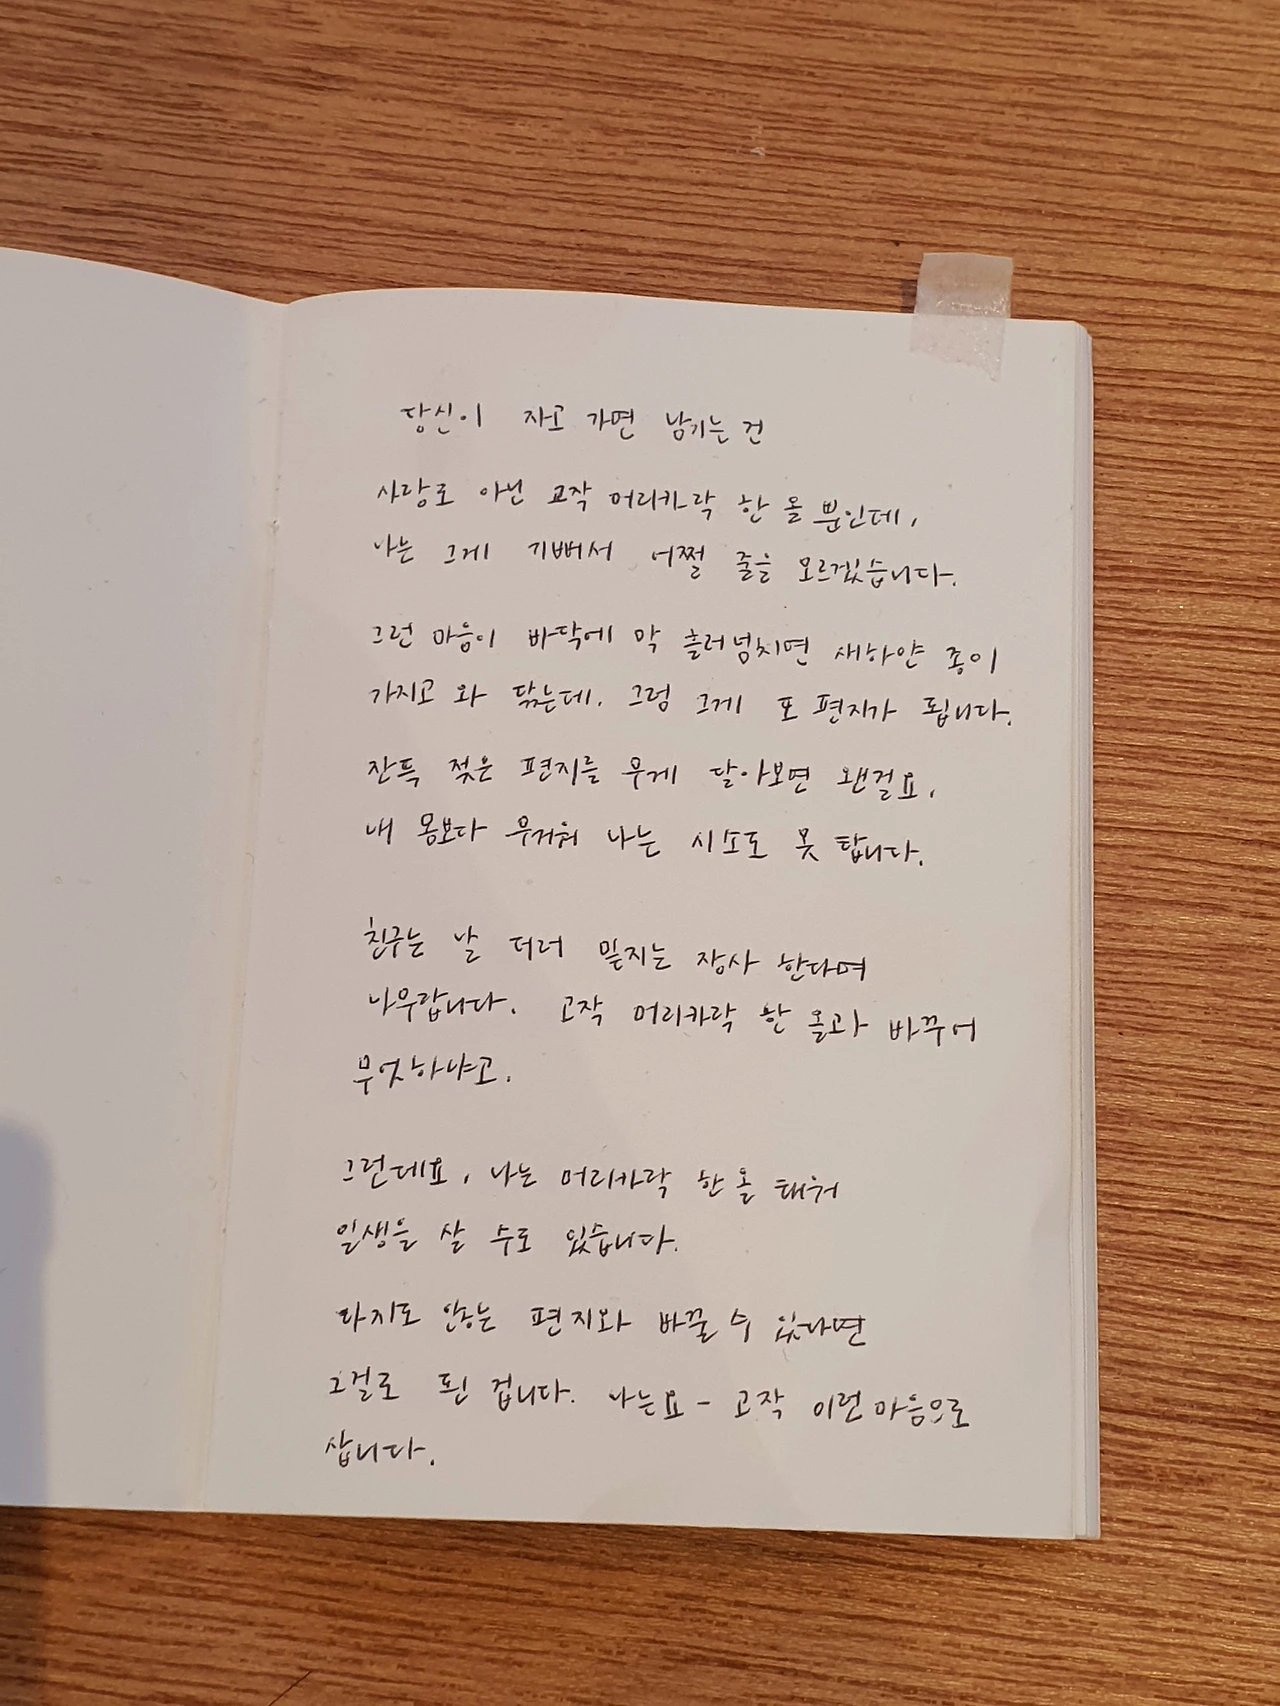 당신이 자고 가면 남기는 건
사랑도 아닌 고작 머리카락 한 올 뿐인데,
나는 그게 기뻐서 어쩔 줄을 모르겠습니다.
그런 마음이 바닥에 막 흘러넘치면 새하얀 종이
가지고 와 닦는데. 그럼 그게 또 편지가 됩니다.
잔뜩 젖은 편지를 무게 달아보면 왠걸요,
내 몸보다 무거워 나는 시소도 못 탑니다.
친구는 날 더러 밑지는 장사 한다며
나무랍니다. 고작 머리카락 한 올과 바꾸어
무엇하냐고.
그런데요, 나는 머리카락 한 올 태워
일생을 살 수도 있습니다.
차지도 않는 편지와 바꿀 수 있다면
그걸로 된 겁니다. 나는요- 고작 이런 마음으로
삽니다.